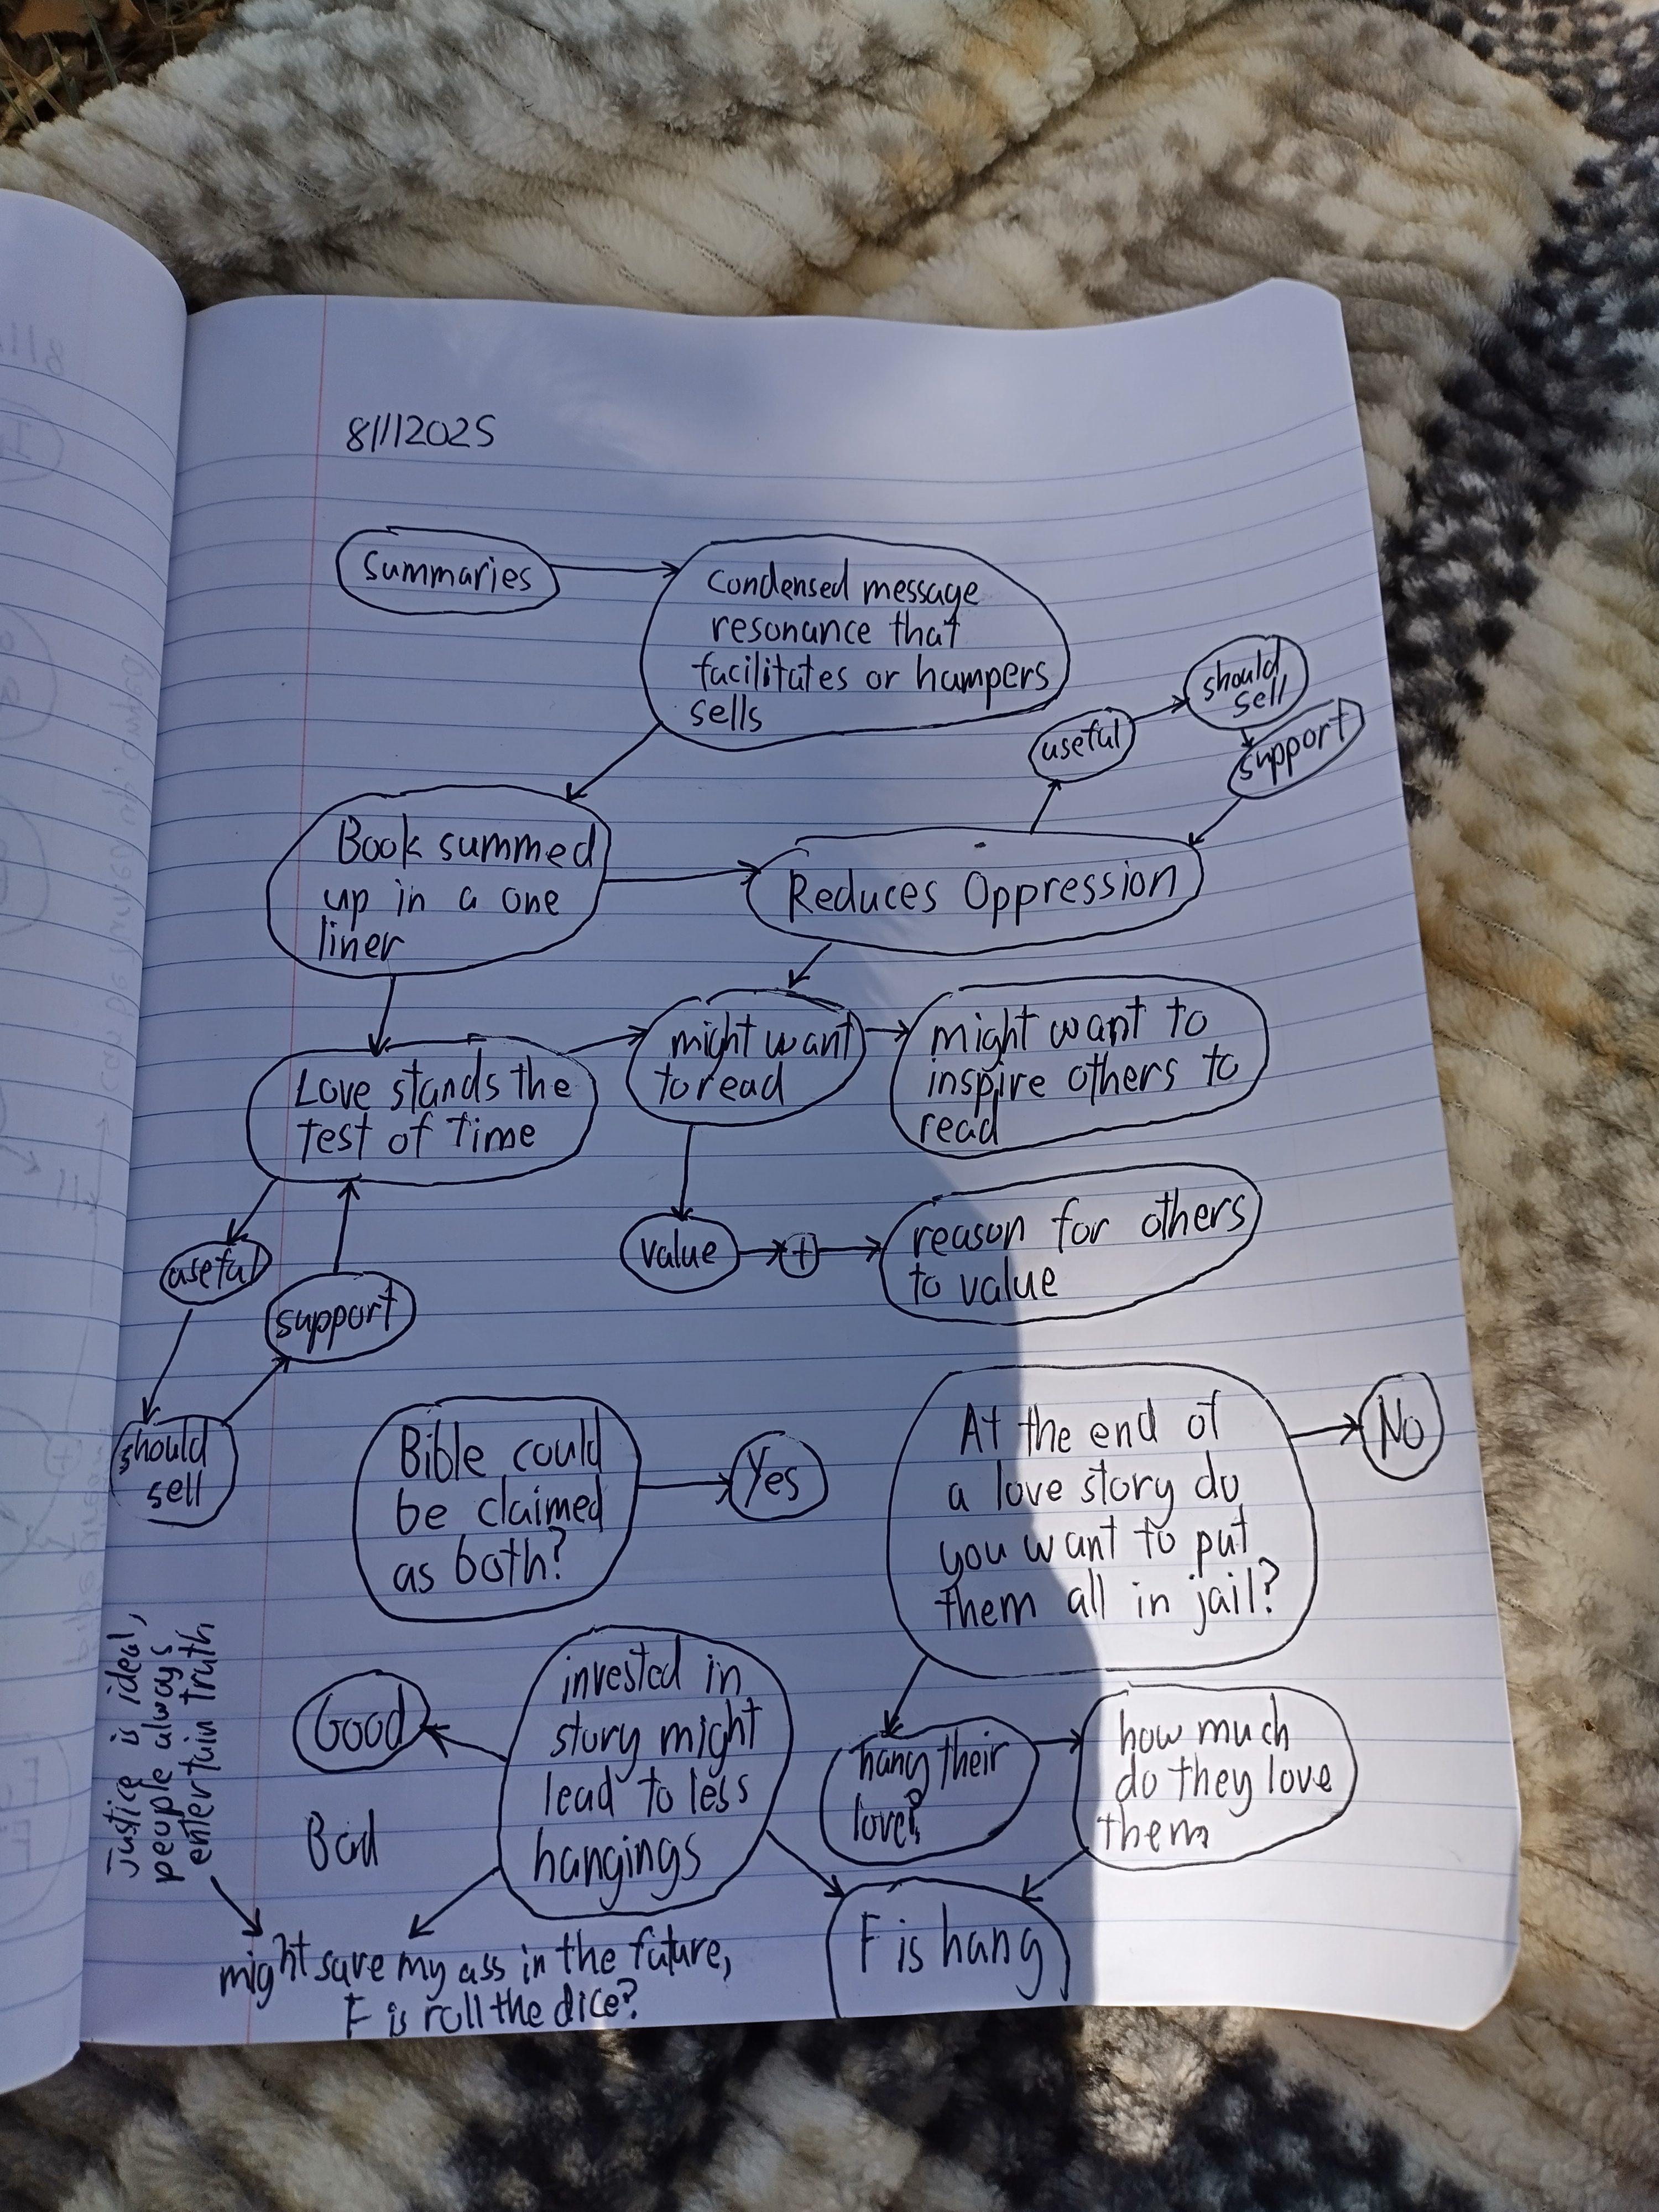 8/1/2025
Summaries
Condensed message
resonance that
facilitates or hampers
sells
should
sell
useful
support
Book summed
up in a one
liner
Reduces Oppression
Love stands the
test of time
might want
to read
might want to
inspire others to
read
useful
support
should
sell
value
+
reason for others
to value
Bible could
be claimed
as both?
Yes
At the end of
a love story do
you want to put
them all in jail?
No
Justice is ideal,
people always
entertain truth
Good
Bad
invested in
story might
lead to less
hangings
hang their
love?
how much
do they love
them
F is hang
might save my ass in the future,
F is roll the dice?